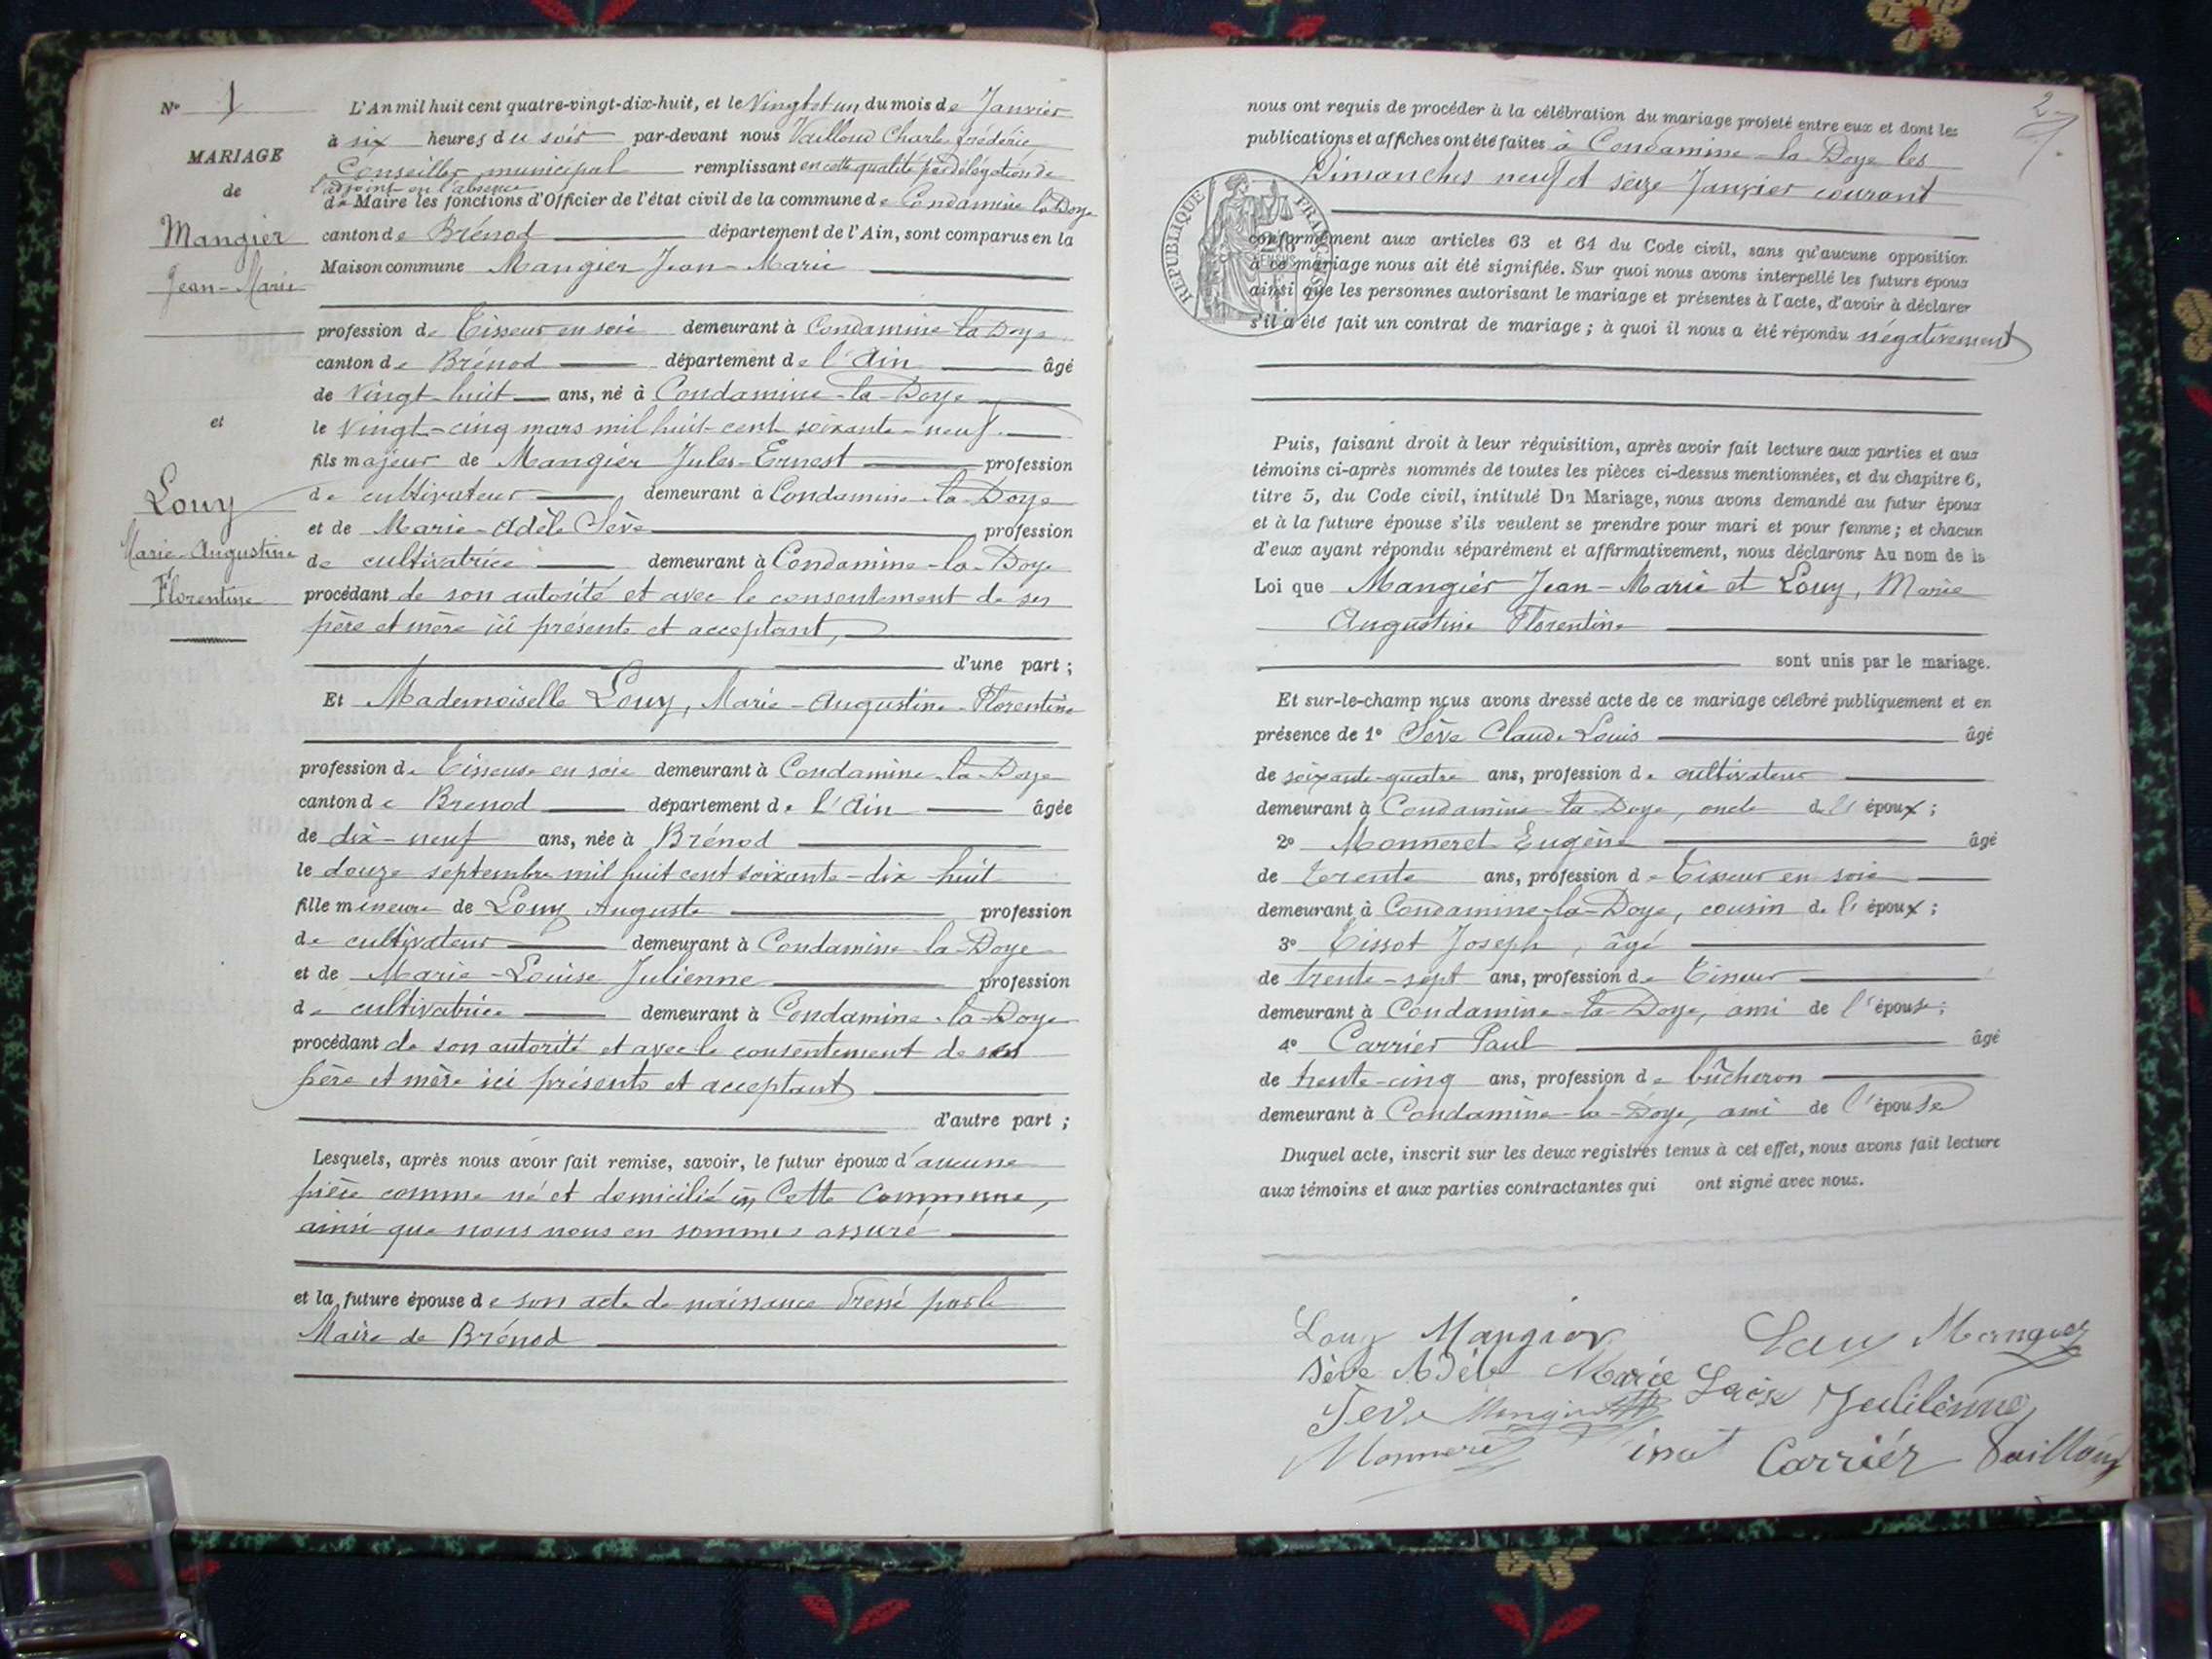 N° 1
MARIAGE
de
Mangier
Jean-Marie
et
Louy
Marie-Augustine
Florentine
L'An mil huit cent quatre-vingt-dix-huit, et le Vingt et un du mois de Janvier
à six heures du soir par-devant nous Vailloud Charles Frédéric
Conseiller municipal remplissant en cette qualité par délégation de
l'adjoint en l'absence
de Maire les fonctions d'Officier de l'état civil de la commune de Condamine la Doye
canton de Brénod département de l'Ain, sont comparus en la
Maison commune Mangier Jean-Marie
profession de Tisseur en soie demeurant à Condamine la Doye
canton de Brénod département de l'Ain âgé
de Vingt-huit ans, né à Condamine-la-Doye
le vingt-cinq mars mil huit-cent soixante-neuf.
fils majeur de Mangier Jules-Ernest profession
de cultivateur demeurant à Condamine-la-Doye
et de Marie-Adèle Sève profession
de cultivatrice demeurant à Condamine-la-Doye
procédant de son autorité et avec le consentement de ses
père et mère ici présents et acceptant,
d'une part ;
Et Mademoiselle Louy, Marie-Augustine-Florentine
profession de Tisseuse en soie demeurant à Condamine-la-Doye
canton de Brenod département de l'Ain âgée
de dix-neuf ans, née à Brénod
le douze septembre mil huit cent soixante-dix-huit
fille mineure de Louy Auguste profession
de cultivateur demeurant à Condamine-la-Doye
et de Marie-Louise Julienne profession
de cultivatrice demeurant à Condamine-la-Doye
procédant de son autorité et avec le consentement de ses
père et mère ici présents et acceptant
d'autre part ;
Lesquels, après nous avoir fait remise, savoir, le futur époux d'aucune
pièce comme né et domicilié en cette commune,
ainsi que nous nous en sommes assuré
et la future épouse de son acte de naissance dressé par le
Maire de Brénod
2
nous ont requis de procéder à la célébration du mariage projeté entre eux et dont les
publications et affiches ont été faites à Condamine-la-Doye les
Dimanches neuf et seize Janvier courant
RÉPUBLIQUE FRANÇAISE
conformément aux articles 63 et 64 du Code civil, sans qu'aucune opposition
à ce mariage nous ait été signifiée. Sur quoi nous avons interpellé les futurs époux
ainsi que les personnes autorisant le mariage et présentes à l'acte, d'avoir à déclarer
s'il a été fait un contrat de mariage ; à quoi il nous a été répondu négativement
Puis, faisant droit à leur réquisition, après avoir fait lecture aux parties et aux
témoins ci-après nommés de toutes les pièces ci-dessus mentionnées, et du chapitre 6,
titre 5, du Code civil, intitulé Du Mariage, nous avons demandé au futur époux
et à la future épouse s'ils veulent se prendre pour mari et pour femme ; et chacun
d'eux ayant répondu séparément et affirmativement, nous déclarons Au nom de la
Loi que Mangier Jean-Marie et Louy, Marie
Augustine Florentine
sont unis par le mariage.
Et sur-le-champ nous avons dressé acte de ce mariage célébré publiquement et en
présence de 1° Sève Claude Louis âgé
de soixante-quatre ans, profession de cultivateur
demeurant à Condamine-la-Doye, oncle de l'époux ;
2° Monneret Eugène âgé
de trente ans, profession de Tisseur en soie
demeurant à Condamine-la-Doye, cousin de l'époux ;
3° Tissot Joseph, âgé
de trente-sept ans, profession de Tisseur
demeurant à Condamine-la-Doye, ami de l'épouse ;
4° Carrier Paul âgé
de trente-cinq ans, profession de bûcheron
demeurant à Condamine-la-Doye, ami de l'épouse
Duquel acte, inscrit sur les deux registres tenus à cet effet, nous avons fait lecture
aux témoins et aux parties contractantes qui ont signé avec nous.
Louy Mangier Mangier
Sève Adèle Marie Julienne
Seve
Monneret Carrier Vailloud